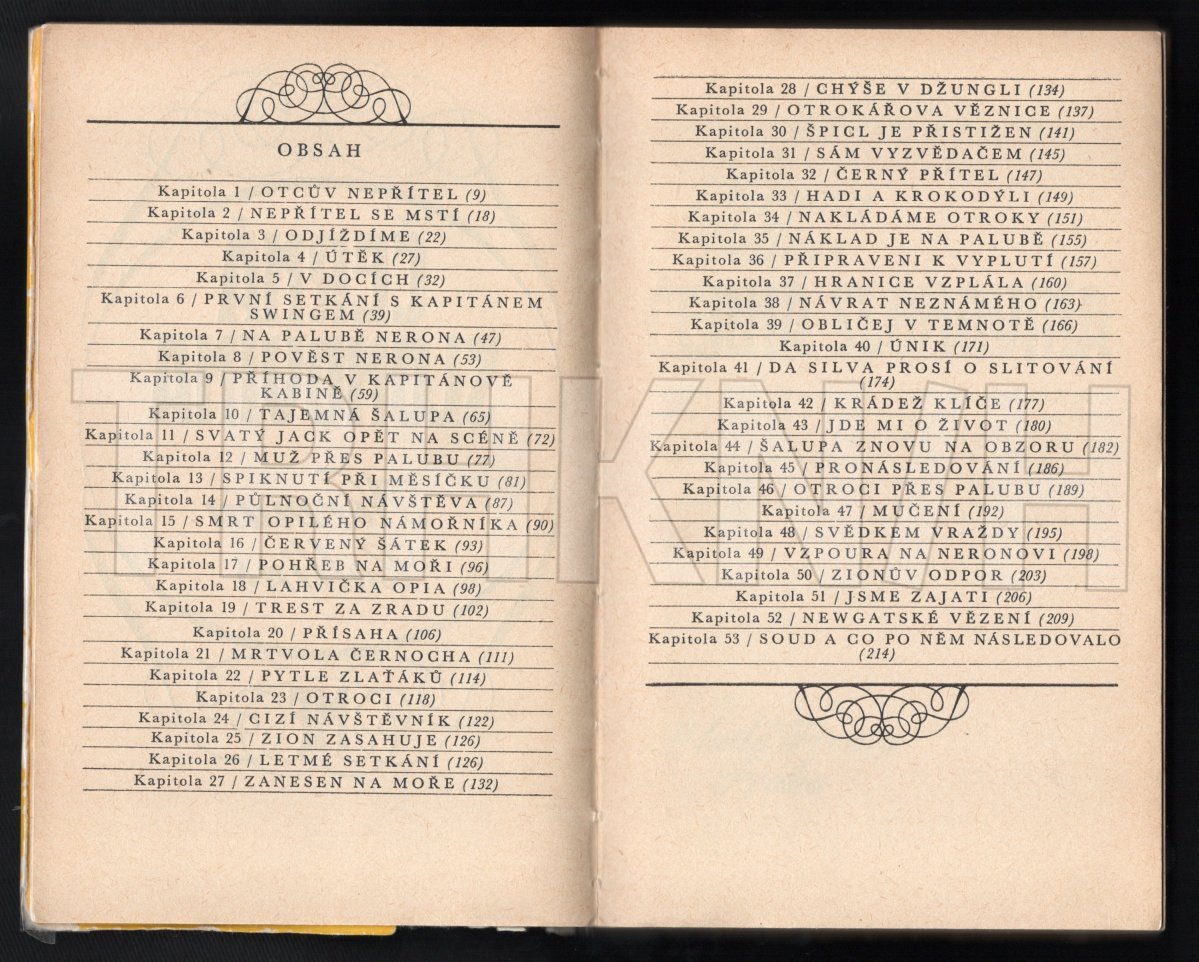 OBSAH
Kapitola 1 / OTCŮV NEPŘÍTEL (9)
Kapitola 2 / NEPŘÍTEL SE MSTÍ (18)
Kapitola 3 / ODJÍŽDÍME (22)
Kapitola 4 / ÚTĚK (27)
Kapitola 5 / V DOCÍCH (32)
Kapitola 6 / PRVNÍ SETKÁNÍ S KAPITÁNEM
SWINGEM (39)
Kapitola 7 / NA PALUBĚ NERONA (47)
Kapitola 8 / POVĚST NERONA (53)
Kapitola 9 / PŘÍHODA V KAPITÁNOVĚ
KABINĚ (59)
Kapitola 10 / TAJEMNÁ ŠALUPA (65)
Kapitola 11 / SVATÝ JACK OPĚT NA SCÉNĚ (72)
Kapitola 12 / MUŽ PŘES PALUBU (77)
Kapitola 13 / SPIKNUTÍ PŘI MĚSÍČKU (81)
Kapitola 14 / PŮLNOČNÍ NÁVŠTĚVA (87)
Kapitola 15 / SMRT OPILÉHO NÁMOŘNÍKA (90)
Kapitola 16 / ČERVENÝ ŠÁTEK (93)
Kapitola 17 / POHŘEB NA MOŘI (96)
Kapitola 18 / LAHVIČKA OPIA (98)
Kapitola 19 / TREST ZA ZRADU (102)
Kapitola 20 / PŘÍSAHA (106)
Kapitola 21 / MRTVOLA ČERNOCHA (111)
Kapitola 22 / PYTLE ZLAŤÁKŮ (114)
Kapitola 23 / OTROCI (118)
Kapitola 24 / CIZÍ NÁVŠTĚVNÍK (122)
Kapitola 25 / ZION ZASAHUJE (126)
Kapitola 26 / LETMÉ SETKÁNÍ (126)
Kapitola 27 / ZANESEN NA MOŘE (132)
Kapitola 28 / CHÝŠE V DŽUNGLI (134)
Kapitola 29 / OTROKÁŘOVA VĚZNICE (137)
Kapitola 30 / ŠPICL JE PŘISTIŽEN (141)
Kapitola 31 / SÁM VYZVĚDAČEM (145)
Kapitola 32 / ČERNÝ PŘÍTEL (147)
Kapitola 33 / HADI A KROKODÝLI (149)
Kapitola 34 / NAKLÁDÁME OTROKY (151)
Kapitola 35 / NÁKLAD JE NA PALUBĚ (155)
Kapitola 36 / PŘIPRAVENI K VYPLUTÍ (157)
Kapitola 37 / HRANICE VZPLÁLA (160)
Kapitola 38 / NÁVRAT NEZNÁMÉHO (163)
Kapitola 39 / OBLIČEJ V TEMNOTĚ (166)
Kapitola 40 / ÚNIK (171)
Kapitola 41 / DA SILVA PROSÍ O SLITOVÁNÍ
(174)
Kapitola 42 / KRÁDEŽ KLÍČE (177)
Kapitola 43 / JDE MI O ŽIVOT (180)
Kapitola 44 / ŠALUPA ZNOVU NA OBZORU (182)
Kapitola 45 / PRONÁSLEDOVÁNÍ (186)
Kapitola 46 / OTROCI PŘES PALUBU (189)
Kapitola 47 / MUČENÍ (192)
Kapitola 48 / SVĚDKEM VRAŽDY (195)
Kapitola 49 / VZPOURA NA NERONOVI (198)
Kapitola 50 / ZIONŮV ODPOR (203)
Kapitola 51 / JSME ZAJATI (206)
Kapitola 52 / NEWGATSKÉ VĚZENÍ (209)
Kapitola 53 / SOUD A CO PO NĚM NÁSLEDOVALO
(214)
TRHKNIH